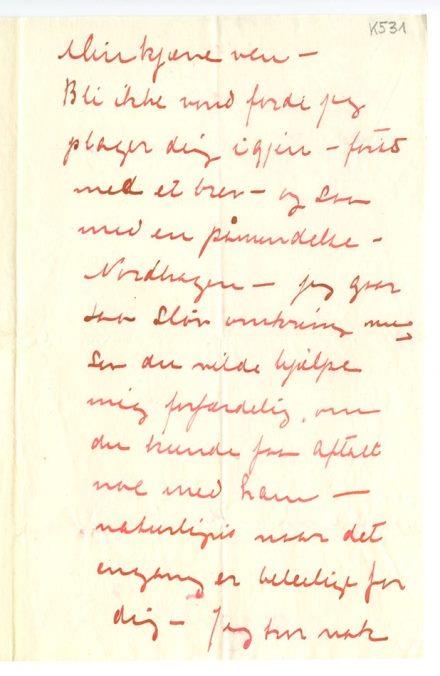 K531
Min kjære ven –
Bli ikke vond fordi jeg
plager dig igjen – først
med et brev – og saa
med en påmindelse –
Nordhagen – jeg gaar
saa sløv omkring mig
saa du vilde hjælpe
mig forfærdelig, om
du kunde faa aftalt
noe med ham –
naturligvis naar det
engang er beleilig for
dig – Jeg tror nok